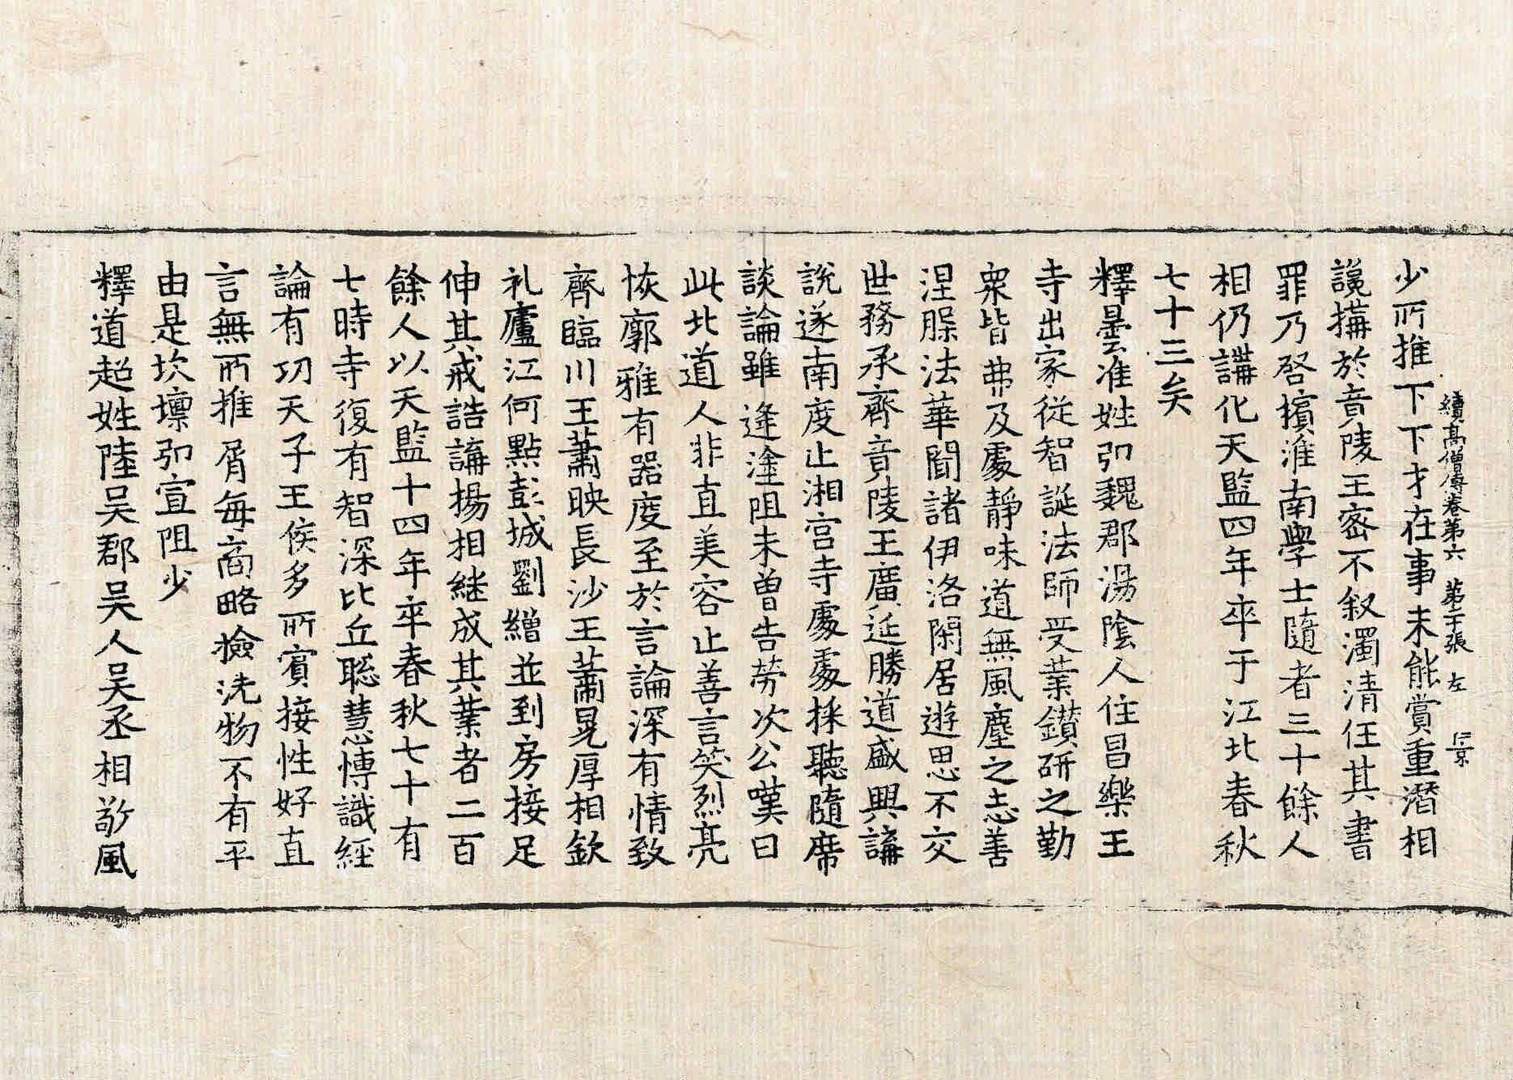 續高僧傳卷第六　第二十張　左
少所推下下才在事未能賞重潛相
讒搆於竟陵王密不叙濁清任其書
罪乃啓擯淮南學士隨者三十餘人
相仍講化天監四年卒于江北春秋
七十三矣
釋曇准姓弘魏郡湯陰人住昌樂王
寺出家從智誕法師受業鑚研之勤
衆皆弗及處靜味道無風塵之志善
涅槃法華聞諸伊洛閑居遊思不交
世務承齊竟陵王廣延勝道盛興講
說遂南度止湘宮寺處處採聽隨席
談論雖逢塗阻未曾告勞次公嘆曰
此北道人非直美容止善言笑烈亮
恢廓雅有器度至於言論深有情致
齊臨川王蕭映長沙王蕭晃厚相欽
礼廬江何點彭城劉繪並到房接足
伸其戒誥講揚相継成其業者二百
餘人以天監十四年卒春秋七十有
七時寺復有智深比丘聡慧博識經
論有功天子王侯多所賓接性好直
言無所推屑每商略撿洗物不有平
由是坎壈弘宣阻少
釋道超姓陸吳郡吳人吳丞相敬風